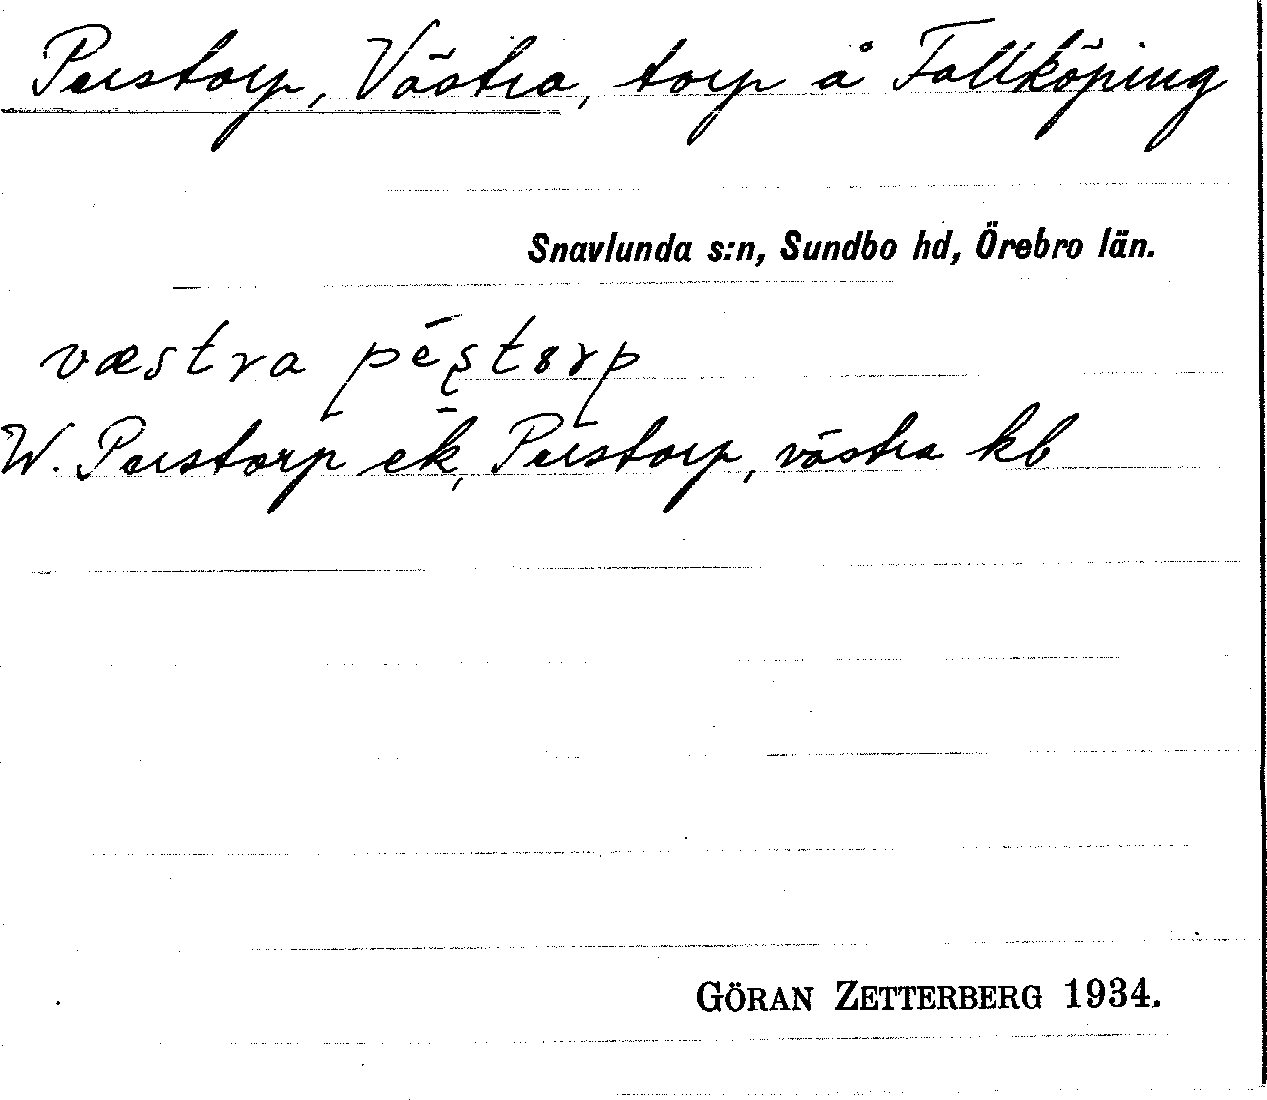 Perstorp, Västra, torp å Fallköping
Snavlunda s:n, Sundbo hd, Örebro län.
væstra
W. Perstorp ek, Perstorp, västra kb
GÖRAN ZETTERBERG 1934.